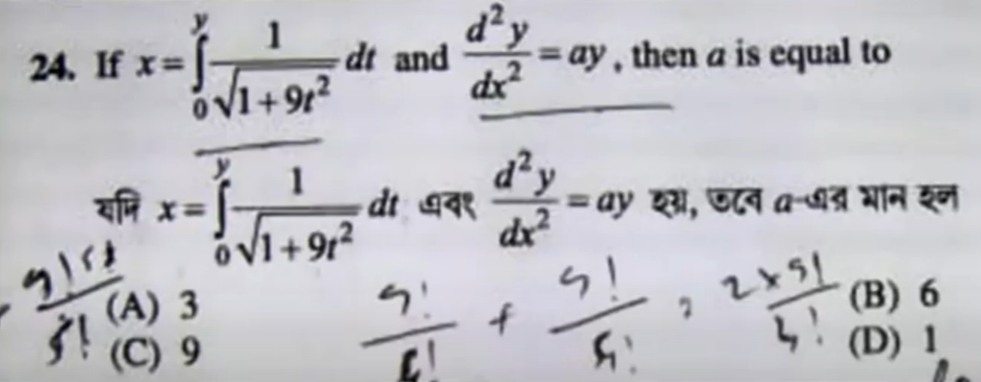 24. If x = ∫₀ʸ 1/√(1+9t²) dt and d²y/dx² = ay, then a is equal to
যদি x = ∫₀ʸ 1/√(1+9t²) dt এবং d²y/dx² = ay হয়, তবে a-এর মান হল
(A) 3 (B) 6
(C) 9 (D) 1